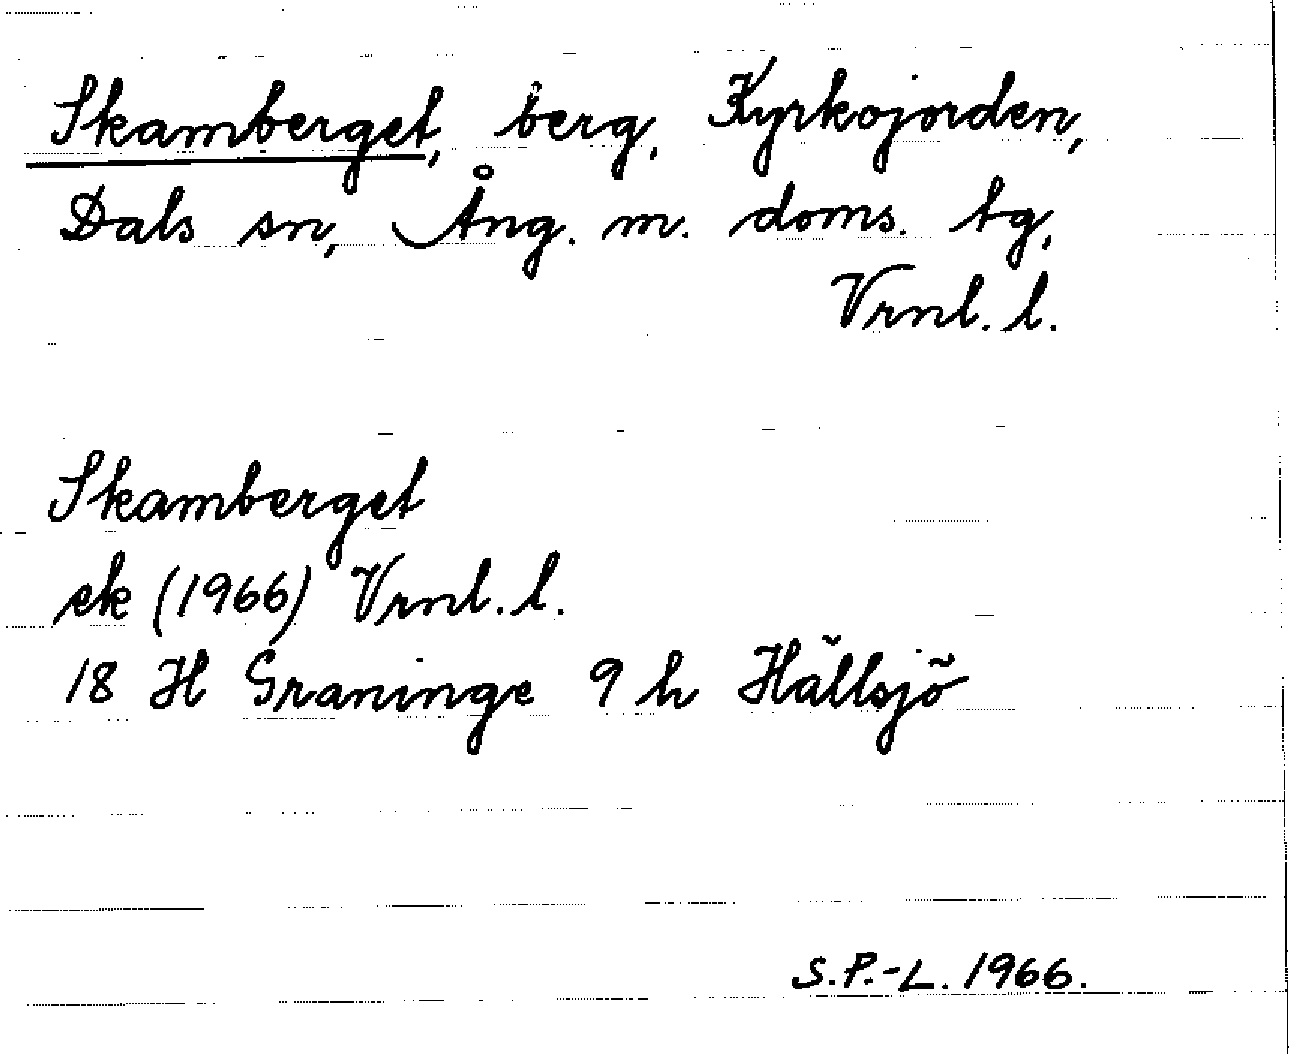 Skamberget, berg, Kyrkojorden,
Dals sn, Ång. m. doms. tg,
Vrnl. l.
Skamberget
ek (1966) Vrnl. l.
18 H Graninge 9 h Hällsjö
S.P.-L. 1966.